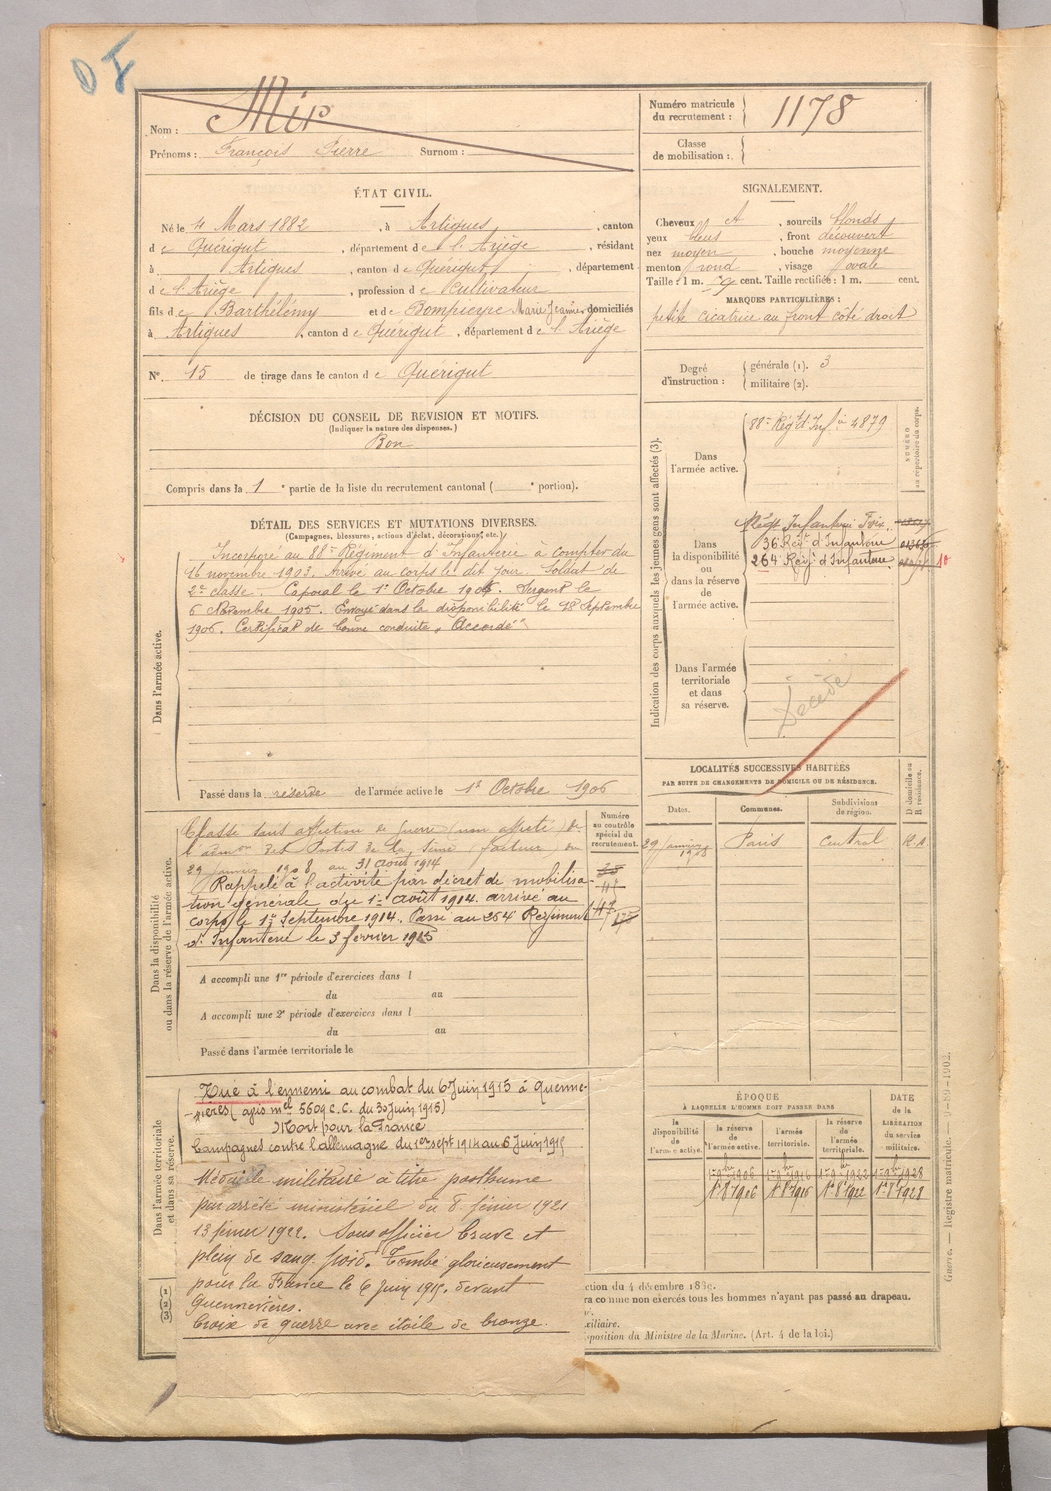 Nom : Mir
Prénoms : François Pierre Surnom :
Numéro matricule du recrutement : 1178
Classe de mobilisation :
ÉTAT CIVIL.
Né le 4 Mars 1882, à Artigues, canton
de Quérigut, département de l'Ariège, résidant
à Artigues, canton de Quérigut, département
de l'Ariège, profession de Cultivateur
fils de Barthélémy et de Bompieyre Marie Jeanne domiciliés
à Artigues, canton de Quérigut, département de l'Ariège
No. 15 de tirage dans le canton de Quérigut
SIGNALEMENT.
Cheveux et, sourcils blonds
yeux bleus, front découvert
nez moyen, bouche moyenne
menton rond, visage ovale
Taille : 1 m. cent. Taille rectifiée : 1 m. cent.
MARQUES PARTICULIÈRES :
petite cicatrice au front côté droit
Degré d'instruction :
générale (1). 3
militaire (2).
DÉCISION DU CONSEIL DE REVISION ET MOTIFS.
(Indiquer la nature des dispenses.)
Bon
Compris dans la 1e partie de la liste du recrutement cantonal ( e portion).
DÉTAIL DES SERVICES ET MUTATIONS DIVERSES.
(Campagnes, blessures, actions d'éclat, décorations, etc.)
Dans l'armée active.
Incorporé au 88e Régiment d'Infanterie à compter du
16 novembre 1903. Arrivé au corps le dit jour. Soldat de
2e classe. Caporal le 1er Octobre 1904. Sergent le
6 Novembre 1905. Envoyé dans la disponibilité le 18 Septembre
1906. Certificat de bonne conduite "Accordé"
Passé dans la réserve de l'armée active le 1er Octobre 1906
Indication des corps auxquels les jeunes gens sont affectés (3).
NUMÉRO au répertoire du corps.
Dans l'armée active.
88e Régt d'Inf. à 4879
Dans la disponibilité ou dans la réserve de l'armée active.
Régt Infanterie Foix
36 Régt d'Infanterie
264 Régt d'Infanterie 10
Dans l'armée territoriale et dans sa réserve.
Décédé
LOCALITÉS SUCCESSIVES HABITÉES
PAR SUITE DE CHANGEMENTS DE DOMICILE OU DE RÉSIDENCE.
Dates. Communes. Subdivisions de région. D domicile ou R résidence.
29 janvier 1908 Paris Central R.
Dans la disponibilité ou dans la réserve de l'armée active.
Numéro au contrôle spécial du recrutement.
Classé sans affection de guerre (non affecté) de
l'admon des Postes de la Seine (facteur) du
29 janvier 1908 au 31 août 1914
Rappelé à l'activité par décret de mobilisa-
tion générale du 1er août 1914. arrivé au
corps le 1er Septembre 1914. Passé au 264e Régiment
d'Infanterie le 3 février 1915
A accompli une 1re période d'exercices dans l
du au
A accompli une 2e période d'exercices dans l
du au
Passé dans l'armée territoriale le
Dans l'armée territoriale et dans sa réserve.
Tué à l'ennemi au combat du 6 Juin 1915 à Quenne-
-vières (avis mel 5609 C.C. du 30 Juin 1915)
Mort pour la France
Campagnes contre l'allemagne du 1er sept 1914 au 6 Juin 1915
Médaille militaire à titre posthume
par arrêté ministériel du 8 février 1921
13 février 1922. Sous officier brave et
plein de sang froid. Tombé glorieusement
pour la France le 6 Juin 1915. devant
Quennevières.
Croix de guerre avec étoile de bronze.
ÉPOQUE
À LAQUELLE L'HOMME DOIT PASSER DANS
la disponibilité de l'armée active. la réserve de l'armée active. l'armée territoriale. la réserve de l'armée territoriale.
DATE de la LIBÉRATION du service militaire.
1er 8bre 1906 1er 8bre 1916 1er 8bre 1922 1er 8bre 1928
ction du 4 décembre 18
ra comme non exercés tous les hommes n'ayant pas passé au drapeau.
xiliaire.
sposition du Ministre de la Marine. (Art. 4 de la loi.)
Guerre. — Registre matricule. 1902.